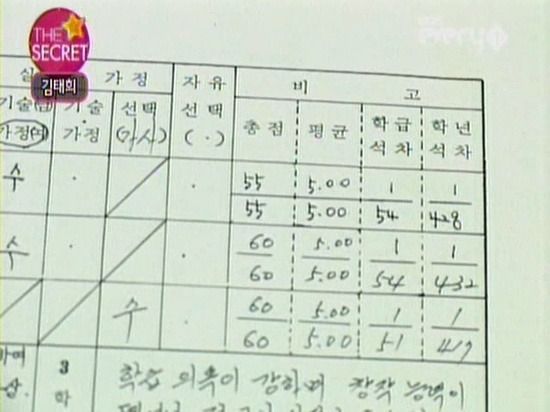 THE
SECRET
김태희
실 가 정 자유 비 고
기술(남) 기술 선택 선택 총점 평균 학급 학년
가정(여) 가정 (가,사) ( . ) 석차 석차
수 55 5.00 1 1
55 5.00 54 428
수 60 5.00 1 1
60 5.00 54 432
수 60 5.00 1 1
60 5.00 51 417
3 학습 의욕이 강하며 창작 능력이
학